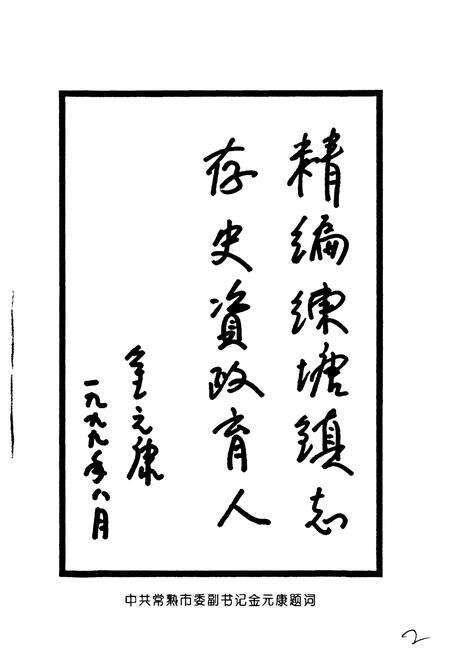 精编练塘镇志
存史資政育人
金元康
一九九九年八月
中共常熟市委副书记金元康题词
2